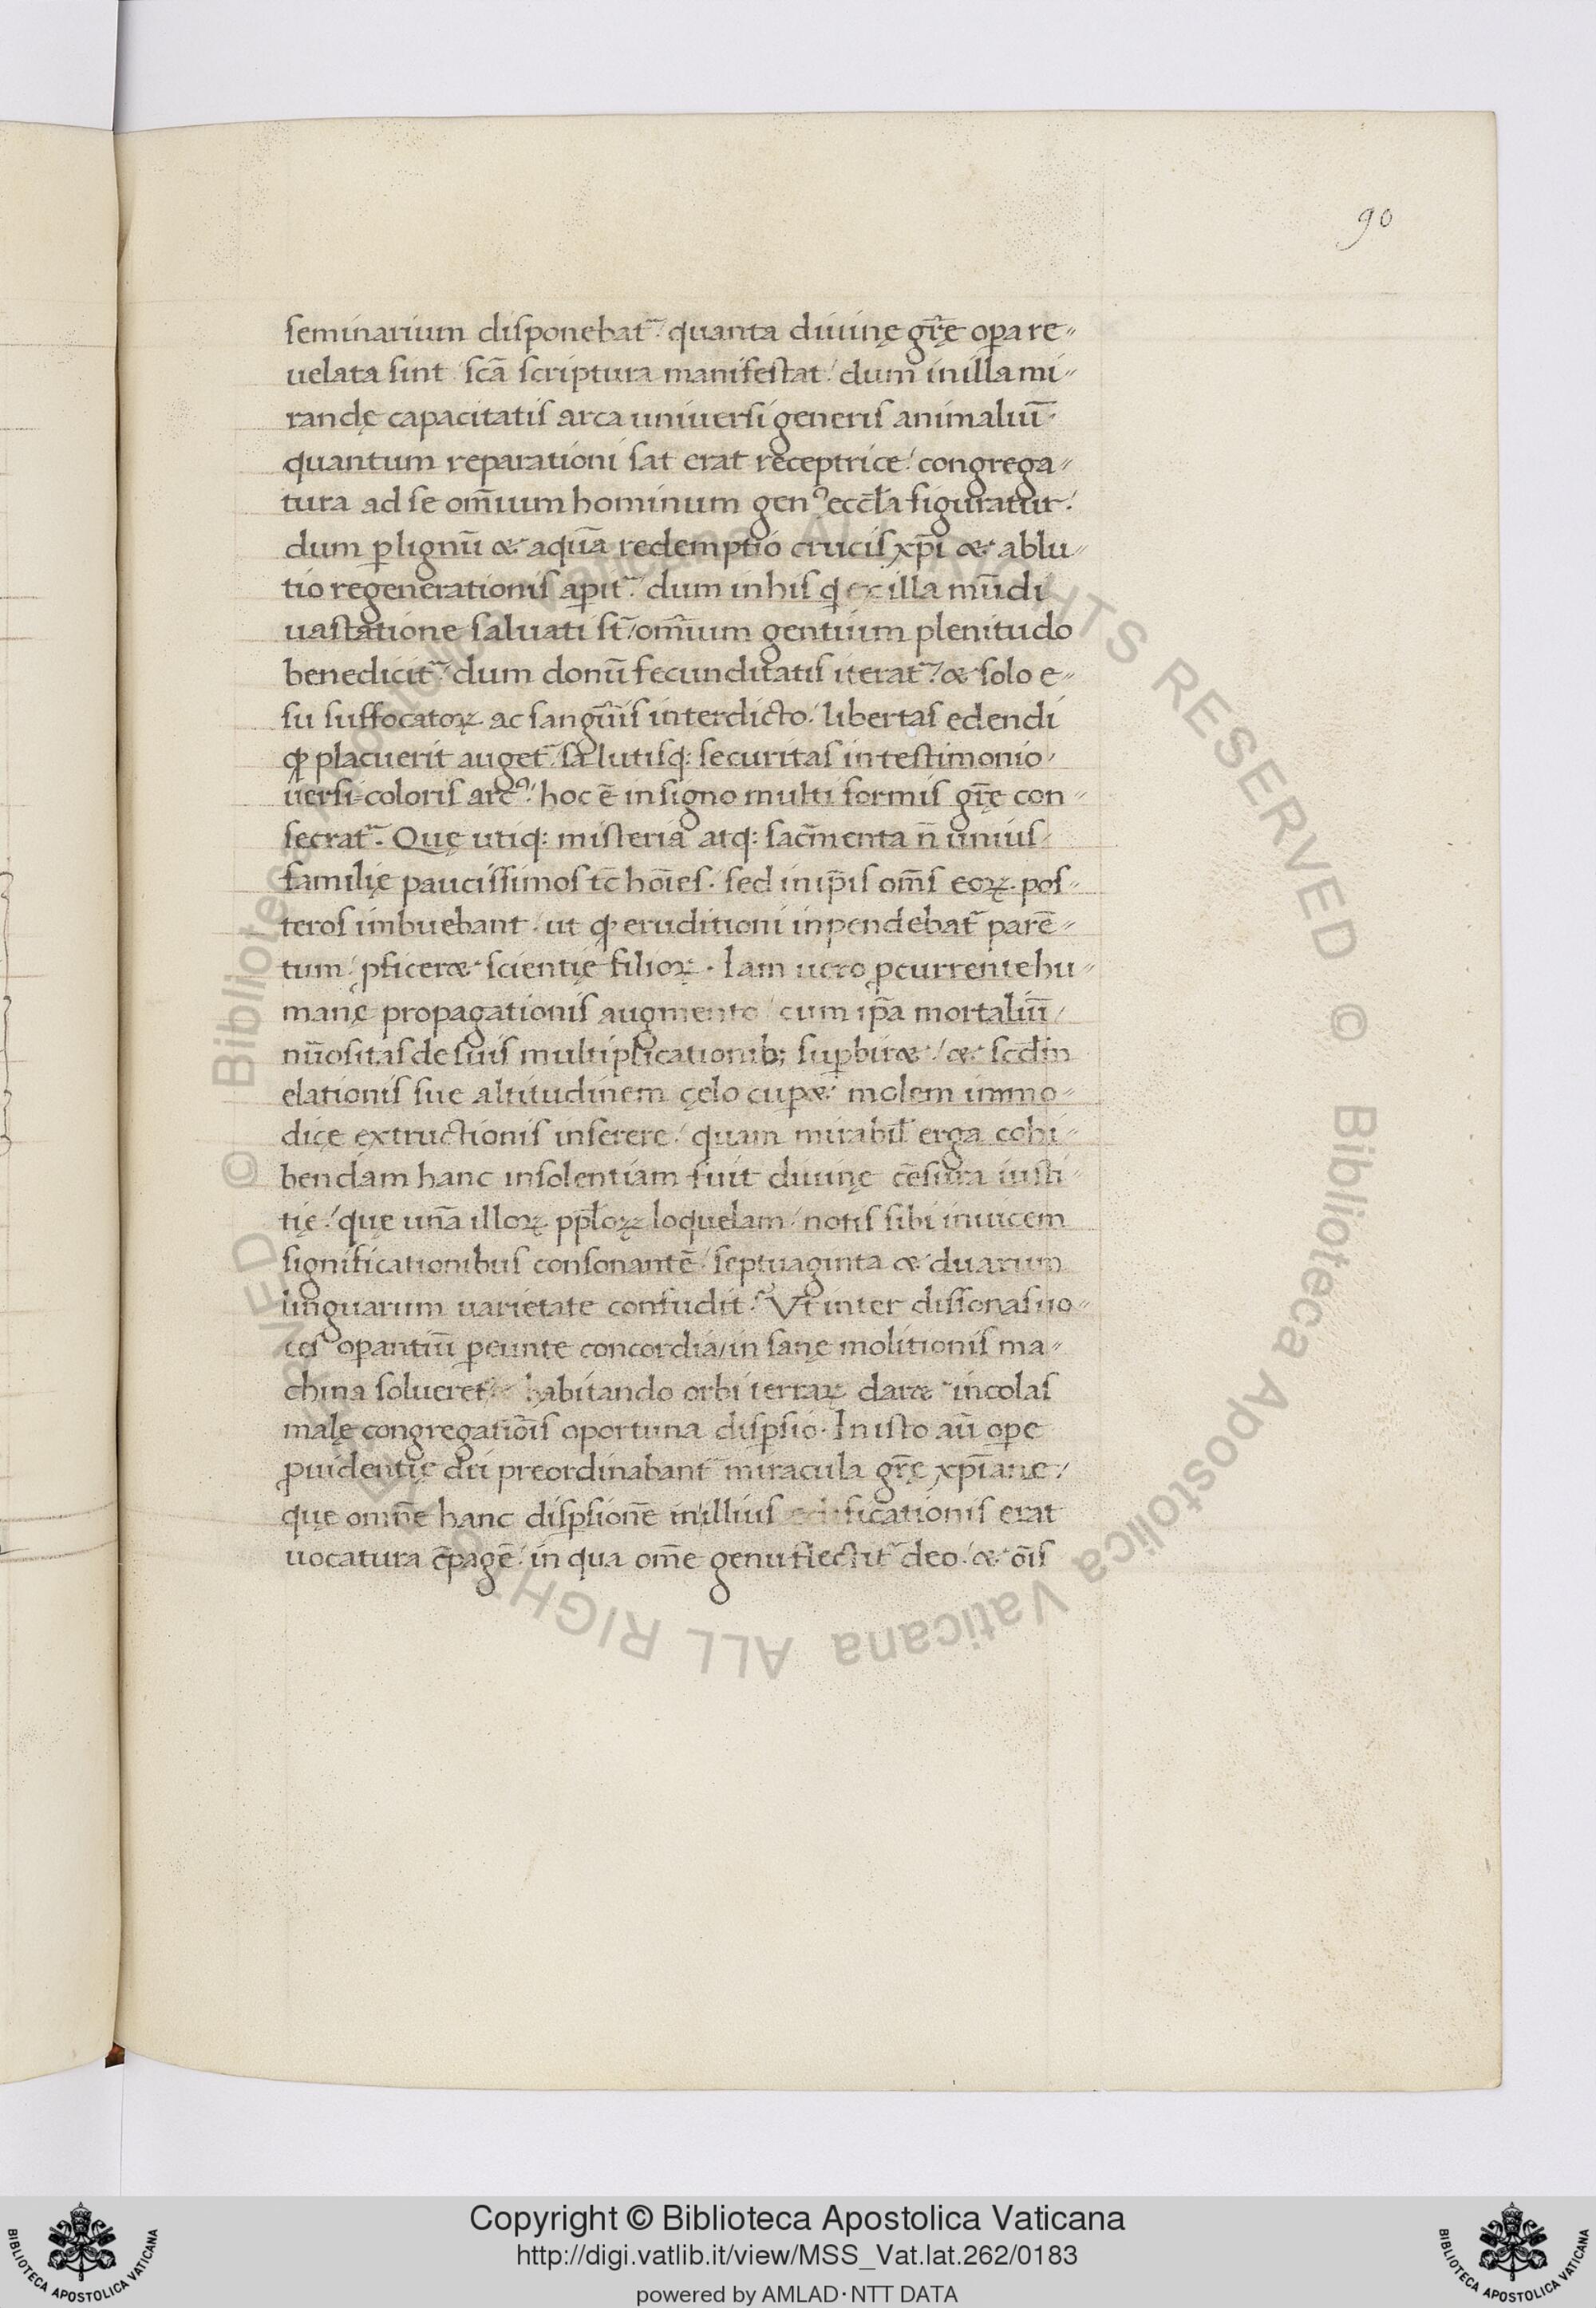 90
seminarium disponebat᷑ quanta diuinę gr̃ę oꝑa re〃
uelata sint sc̃a scriptura manifestat / dum in illa mi〃
randę capacitatis arca uniuersi generis animaliū
quantum reparationi sat erat receptrice / congrega〃
tura ad se om̃ium hominum genꝰ eccl̃a figuratur /
dum ꝑ lignū & aquā redemptio crucis xp̃i & ablu〃
tio regenerationis aꝑit᷑ / dum in his q̨ ex illa mūdi
uastatione saluati st̃ / om̃ium gentium plenitudo
benedicit᷑ / dum donū fecunditatis iterat᷑ / & solo e〃
su suffocatoꝝ ac sanguīs interdicto / libertas edendi
qđ placuerit auget᷑ salutisq: securitas in testimonio /
uersi-coloris arcꝰ / hoc ē in signo multi formis gr̃ę con〃
secrat᷑. Quę utiq: misteria atq: sacr̃menta ñ unius
familię paucissimos tc̃ hoīes / sed in ip̃is om̃s eoꝝ pos〃
teros imbuebant / ut qđ eruditioni inpendebat᷑ parē〃
tum / ꝓficer& scientię filioꝝ. Iam uero ꝓcurrente hu〃
manę propagationis augmento / cum ip̃a mortaliū /
nūositas de suis multiplicationib; suꝑbir& / & scđm
elationis sue altitudinem cęlo cuꝑ& molem immo〃
dicę extructionis inserere / quam mirabil̃ erga cohi〃
bendam hanc insolentiam fuit diuinę cēsura iusti〃
tię / quę unā illoꝝ pp̃loꝝ loquelam / notis sibi inuicem
significationibus consonantē / septuaginta & duarum
linguarum uarietate confudit / Vt inter dissonas uo〃
ces oꝑantiū ꝑeunte concordia / insanę molitionis ma〃
china solueret᷑ / habitando orbi terraꝝ dar& incolas
malę congregatiōis oportuna disꝑsio. In isto aū oꝑe
ꝓuidentię dei preordinabant᷑ miracula gr̃ę xp̃iane /
quę omnē hanc disꝑsionē in illius edificationis erat
uocatura c̃pagē / in qua om̃e genu flectit᷑ deo / & oīs
© Biblioteca Apostolica Vaticana ALL RIGHTS RESERVED © Biblioteca Apostolica Vaticana ALL RIGHTS RESERVED
Copyright © Biblioteca Apostolica Vaticana
http://digi.vatlib.it/view/MSS_Vat.lat.262/0183
powered by AMLAD·NTT DATA
BIBLIOTECA APOSTOLICA VATICANA
BIBLIOTECA APOSTOLICA VATICANA